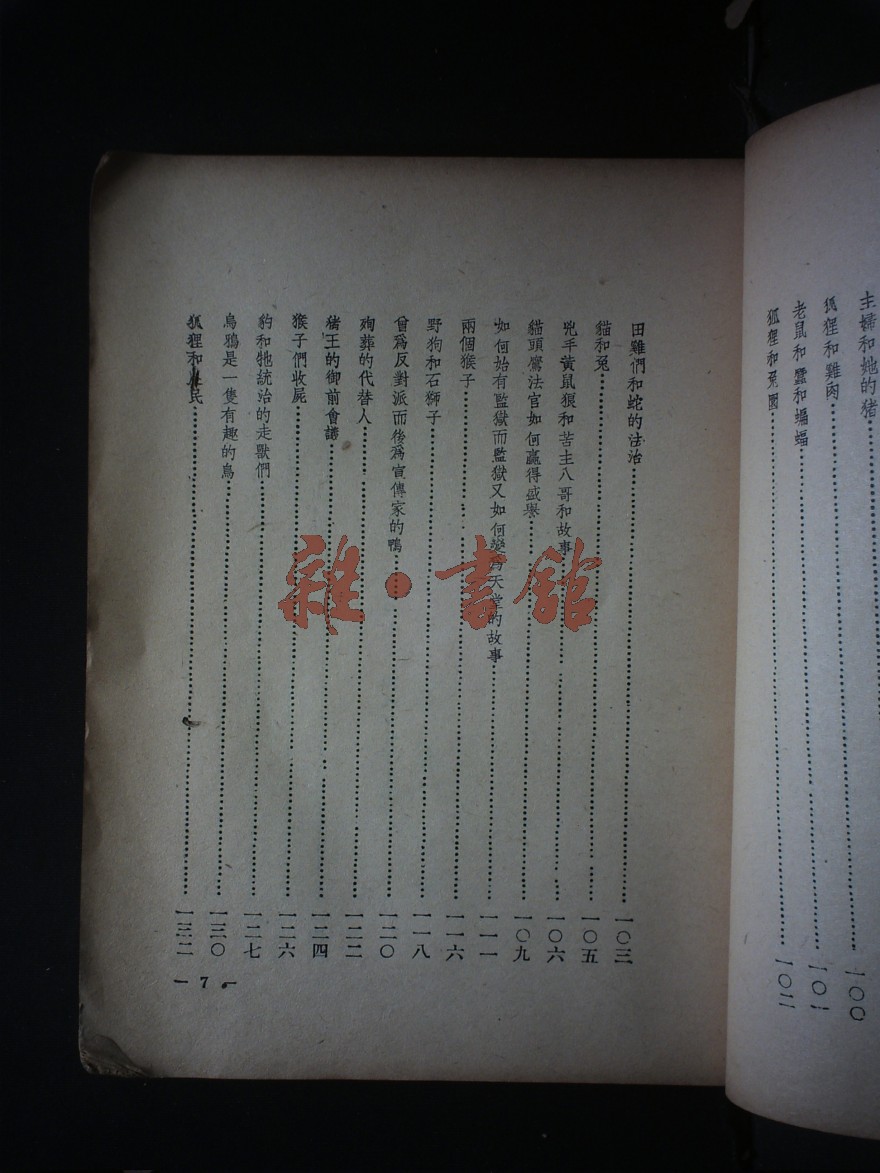 主婦和她的猪
一〇〇
狐狸和雞肉
一〇一
老鼠和蠶和蝙蝠
狐狸和兔國
一〇二
田雞們和蛇的法治……一〇三
貓和兔……一〇五
兇手黃鼠狼和苦主八哥和故事……一〇六
貓頭鷹法官如何贏得盛譽……一〇九
如何始有監獄而監獄又如何變爲天堂的故事……一一一
兩個猴子……一一六
野狗和石獅子……一一八
曾爲反對派而後爲宣傳家的鴨……一二〇
殉葬的代替人……一二二
猪王的御前會議……一二四
猴子們收屍……一二六
豹和牠統治的走獸們……一二七
烏鴉是一隻有趣的鳥……一三〇
狐狸和 民……一三二
— 7 —
雜·書館